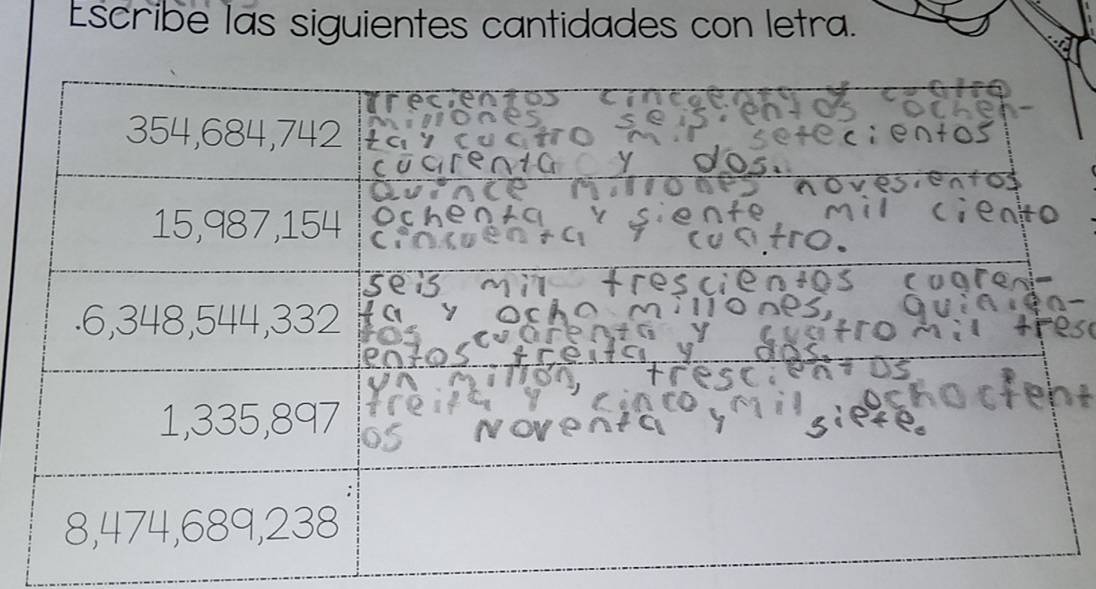 Escribe las siguientes cantidades con letra.
354,684,742
trecientos cincuenta y cuatro
millones seisientos ochen-
ta y cuatro mil setecientos
cuarenta y dos.
15,987,154
Quince millones novesientos
ochenta y siente, mil ciento
cincuenta y cuatro.
6,348,544,332
seis mil trescientos cuaren-
ta y ocho millones, quinien-
tos cuarenta y cuatro mil tresc
entos treita y dos.
1,335,897
un millón, trescientos
treita y cinco, mil ochocient
os noventa y siete.
8,474,689,238